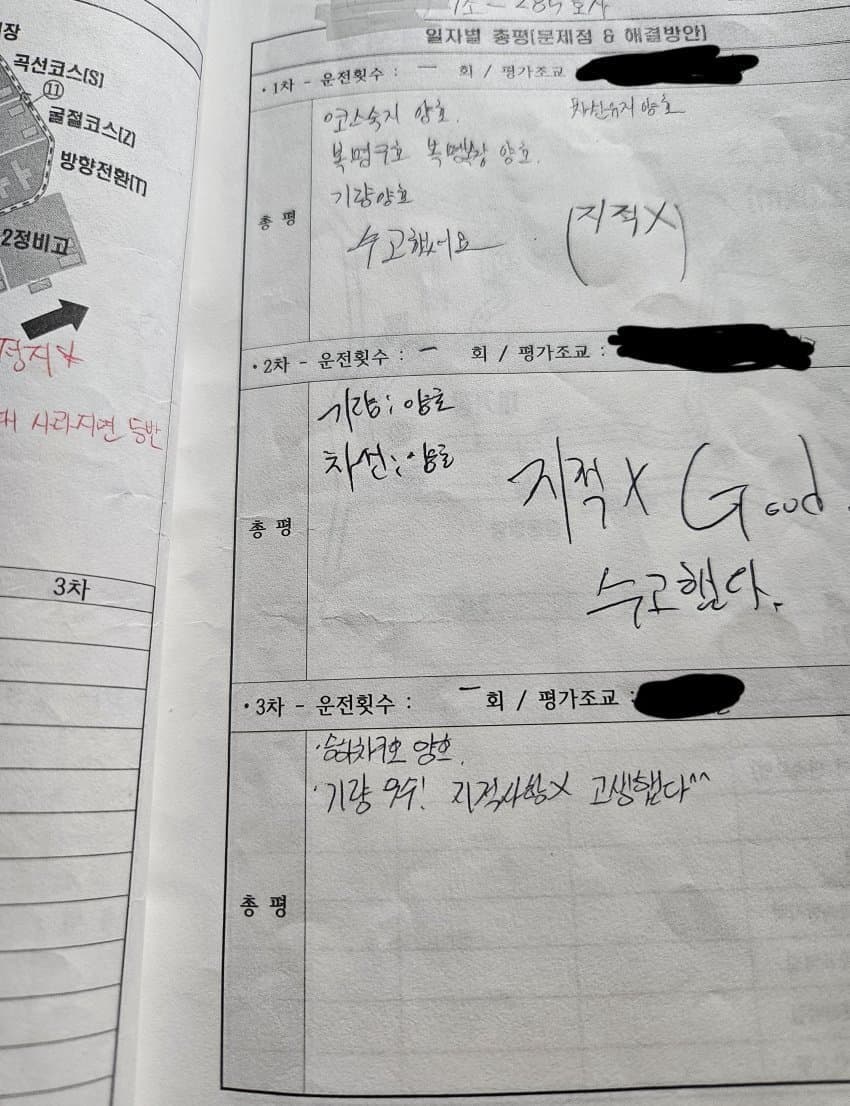 장
곡선코스(S)
⑪
굴절코스(Z)
방향전환(T)
2정비고
정지*
사라지면 등반
3차
일자별 총평(문제점 & 해결방안)
•1차 - 운전횟수 : - 회 / 평가조교
총 평
코스숙지 양호. 차선유지 양호
복명구호 복명복창 양호.
기량양호
수고했어요
(지적X)
•2차 - 운전횟수 : - 회 / 평가조교 :
총 평
기량; 양호
차선; 양호
지적X Good.
수고했다.
•3차 - 운전횟수 : - 회 / 평가조교 :
총 평
·승하차구호 양호.
·기량 우수! 지적사항X 고생했다^^